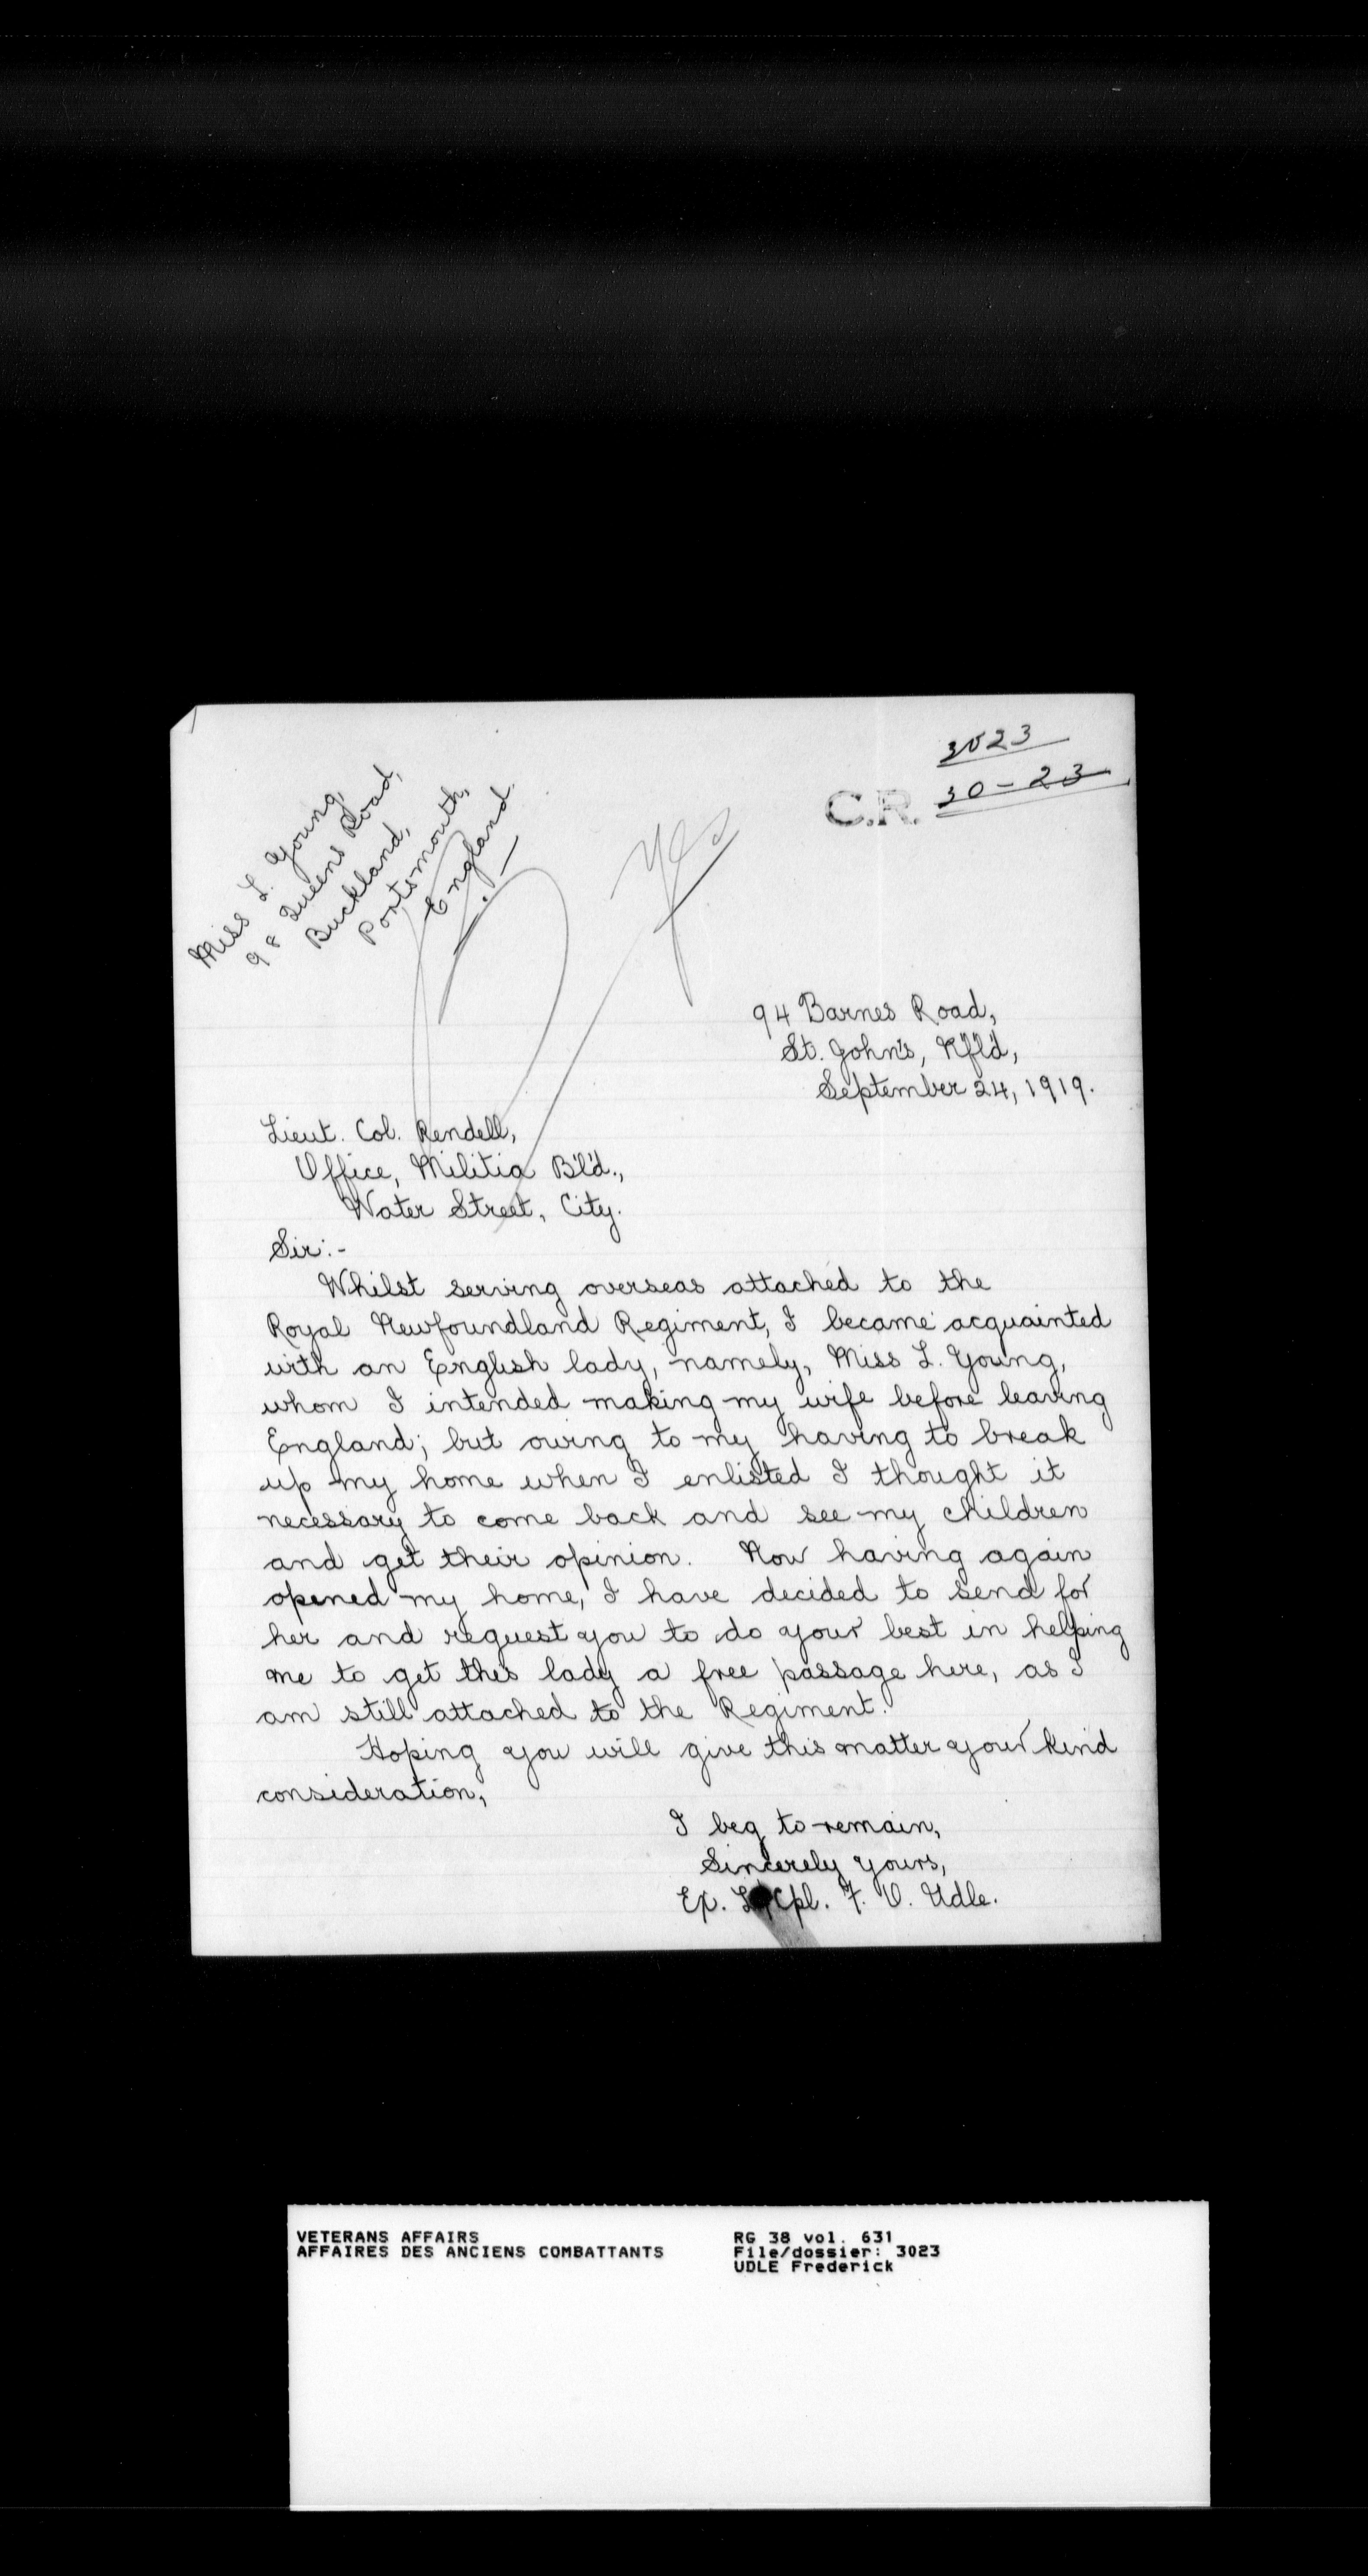 3023
30-23
C.R.
Miss L. Young,
Queens Road,
Buckland,
Portsmouth,
England.
Yes
94 Barnes Road,
St. John's, Nfl'd,
September 24, 1919.
Lieut. Col. Rendell,
Office, Militia B'l'd.,
Water Street, City.
Sir:-
Whilst serving overseas attached to the
Royal Newfoundland Regiment, I became acquainted
with an English lady, namely, Miss L. Young,
whom I intended making my wife before leaving
England; but owing to my having to break
up my home when I enlisted I thought it
necessary to come back and see my children
and get their opinion. Now having again
opened my home, I have decided to send for
her and request you to do your best in helping
me to get this lady a free passage here, as I
am still attached to the Regiment.
Hoping you will give this matter your kind
consideration,
I beg to remain,
Sincerely yours,
Ex. Cpl. F. V. Udle.
VETERANS AFFAIRS
AFFAIRES DES ANCIENS COMBATTANTS
RG 38 vol. 631
File/dossier: 3023
UDLE Frederick